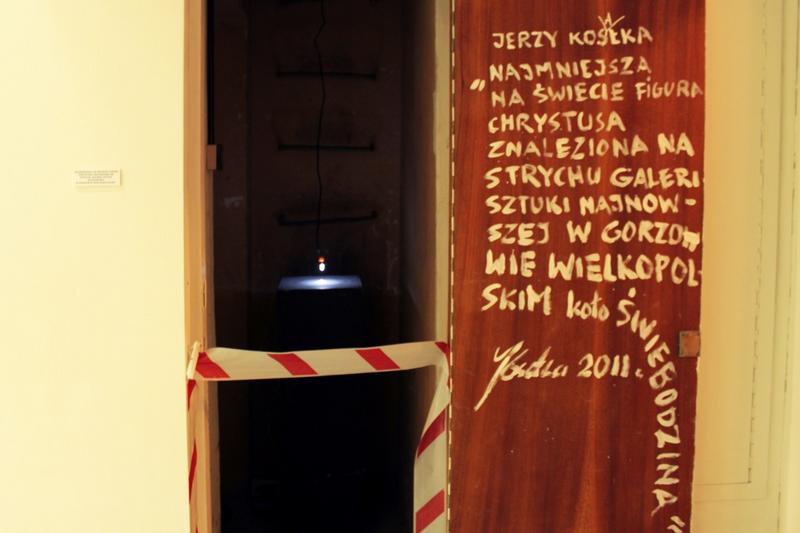 JERZY KOSAŁKA
„NAJMNIEJSZA
NA ŚWIECIE FIGURA
CHRYSTUSA
ZNALEZIONA NA
STRYCHU GALERI
SZTUKI NAJNOW-
SZEJ W GORZOW
WIE WIELKOPOL-
SKIM koło ŚWIEBODZINA"
2011.